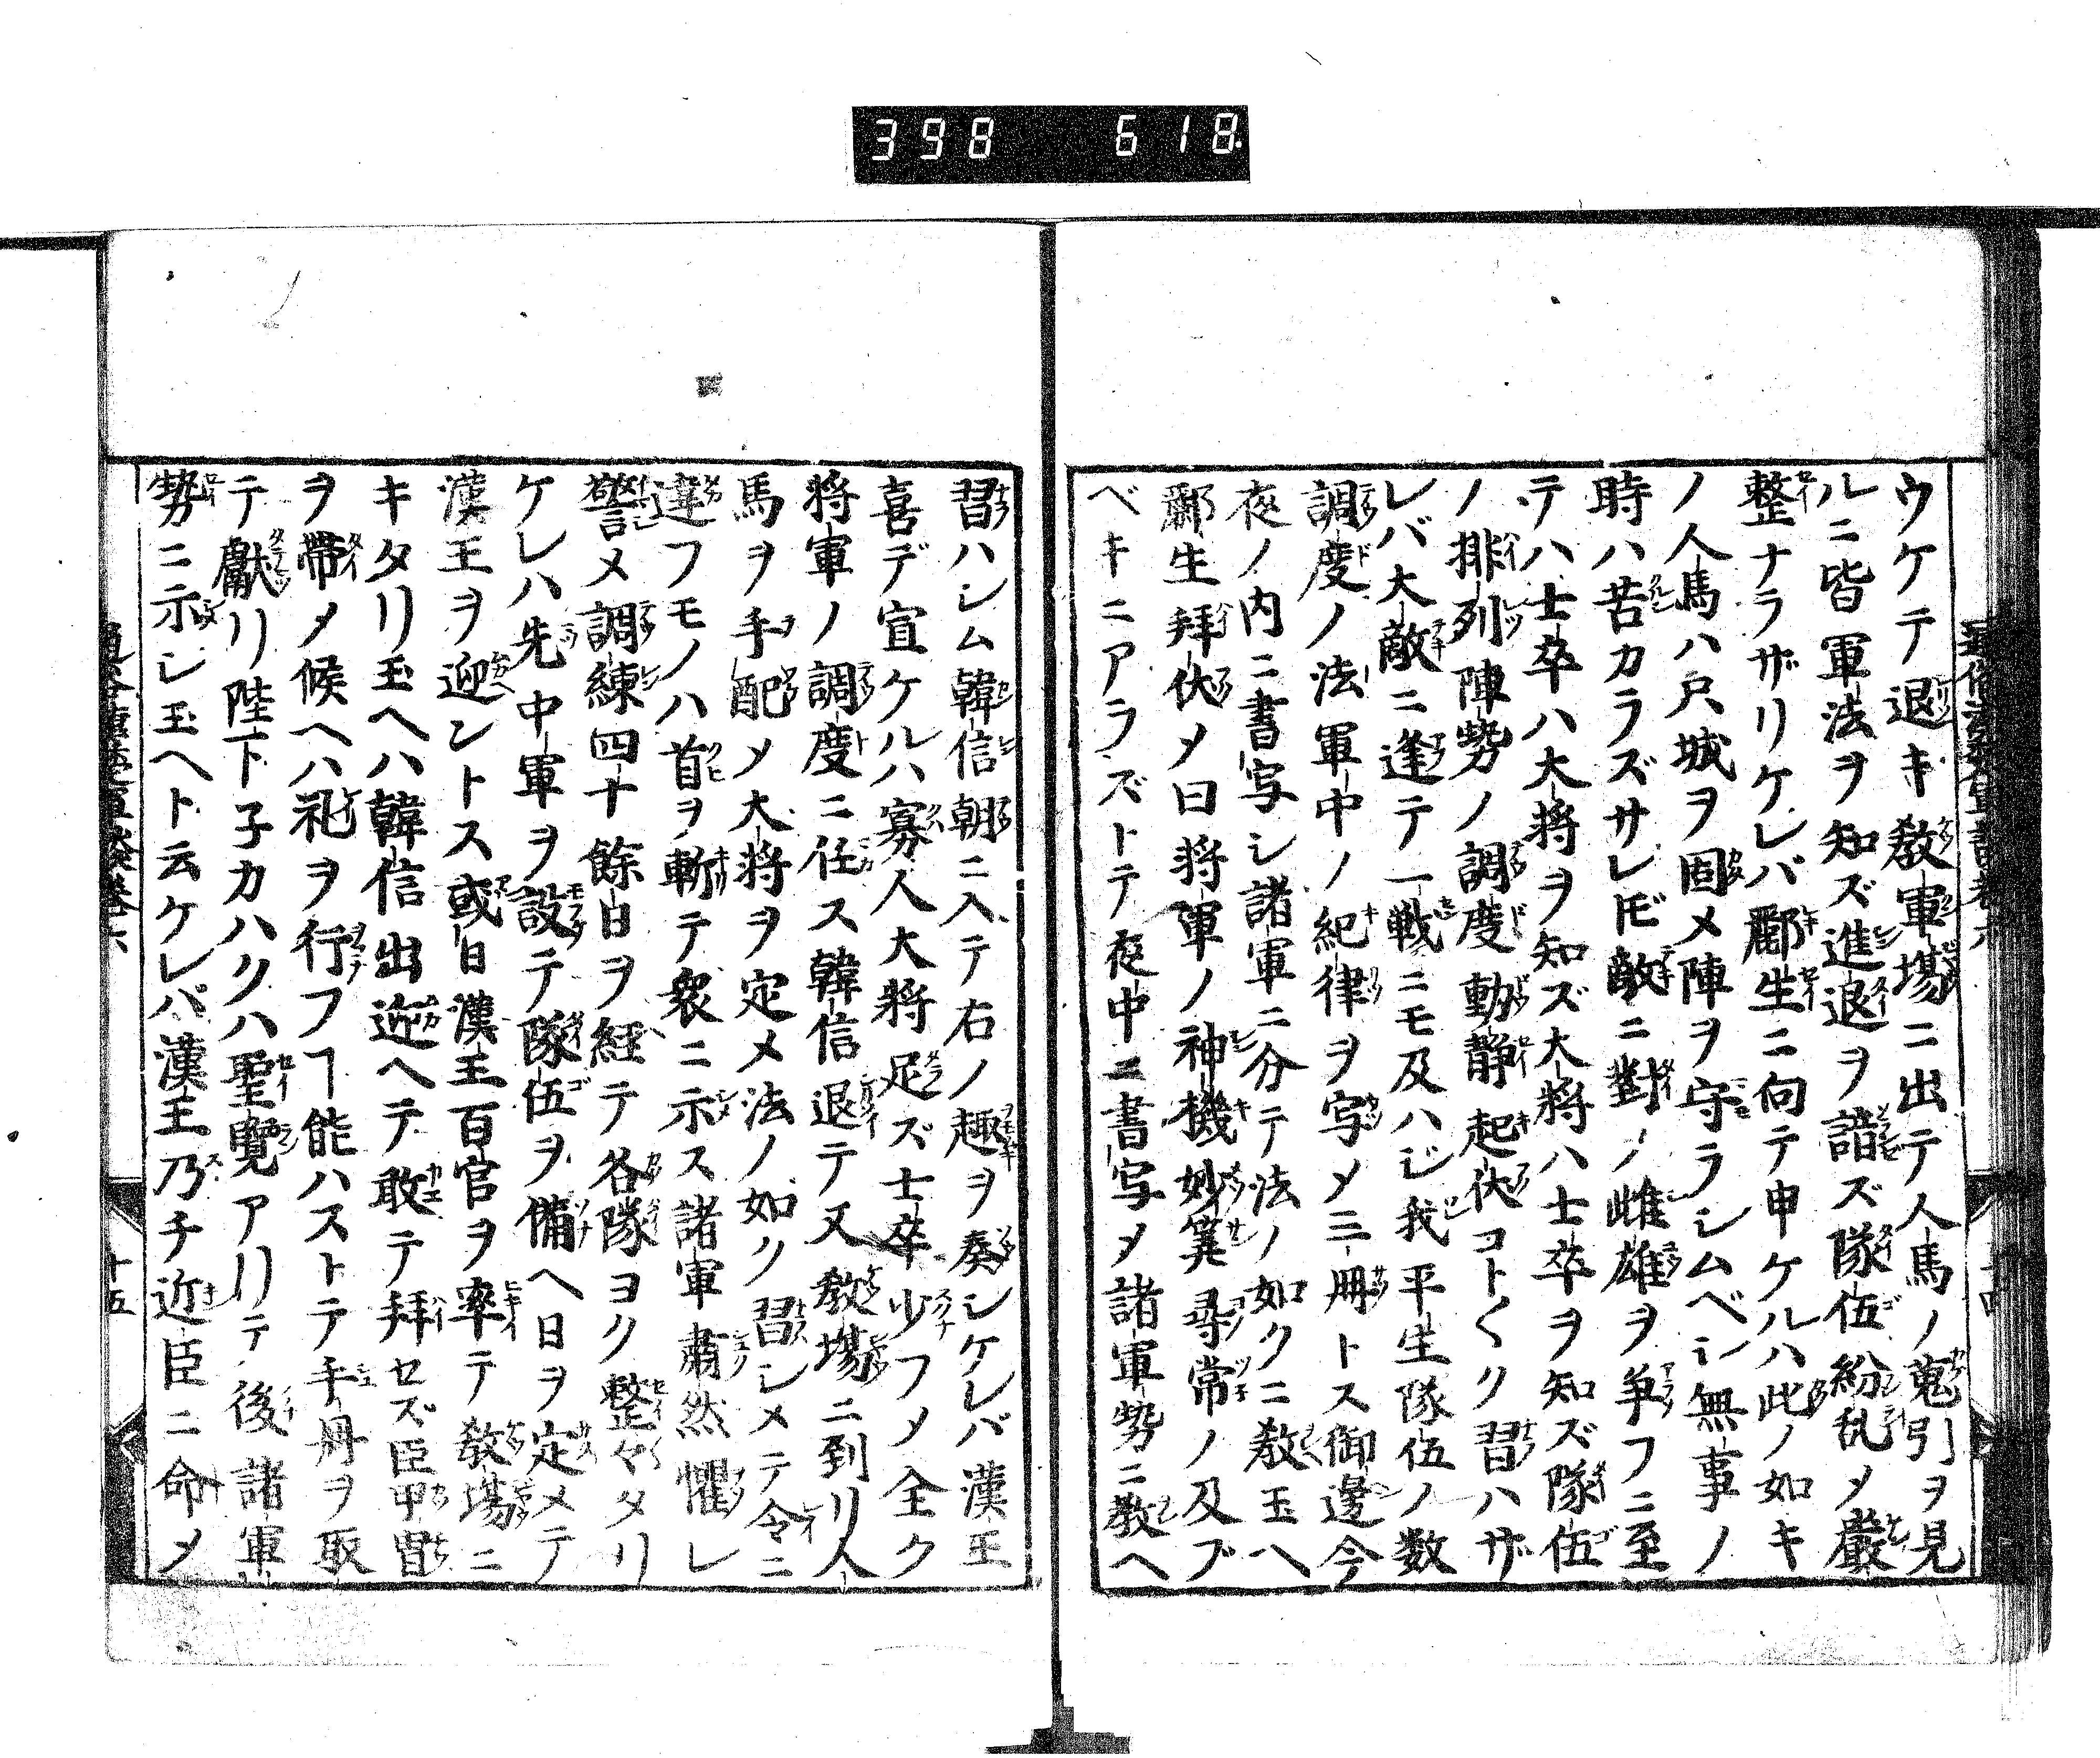 398 618
ウケテ退キ教軍場ニ出テ人馬ノ蒐引ヲ見
ルニ皆軍法ヲ知ズ進退ヲ諳ズ隊伍紛乱メ嚴
整ナラザリケレバ酈生ニ向テ申ケルハ此ノ如キ
ノ人馬ハ只城ヲ固メ陣ヲ守ラシムベシ無事ノ
時ハ苦カラズサレ𪜈敵ニ對ノ雌雄ヲ争フニ至
テハ士卒ハ大将ヲ知ズ大将ハ士卒ヲ知ズ隊伍
ノ排列陣勢ノ調度動静起伏コト〱ク習ハザ
レバ大敵ニ逢テ一戦ニモ及ハジ我平生隊伍ノ数
調度ノ法軍中ノ紀律ヲ写メ三冊トス御邊今
夜ノ内ニ書写シ諸軍ニ分テ法ノ如クニ教玉ヘ
酈生拝伏メ曰将軍ノ神機妙筭尋常ノ及ブ
ベキニアラズトテ夜中ニ書写メ諸軍勢ニ教ヘ
習ハシム韓信朝ニ入テ右ノ趣ヲ奏シケレバ漢王
喜デ宣ケルハ寡人大将足ズ士卒少フメ全ク
将軍ノ調度ニ任ス韓信退テ又教場ニ到リ人
馬ヲ手配メ大将ヲ定メ法ノ如ク習シメテ令ニ
違フモノハ首ヲ斬テ衆ニ示ス諸軍肅然懼レ
警メ調練四十餘日ヲ経テ各隊ヨク整々タリ
ケレハ先中軍ヲ設テ隊伍ヲ備ヘ日ヲ定メテ
漢王ヲ迎ントス或日漢王百官ヲ率テ教場ニ
キタリ玉ヘハ韓信出迎ヘテ敢テ拝セズ臣甲冑
ヲ帶メ候ヘハ礼ヲ行フヿ能ハストテ手冊ヲ取
テ獻リ陛下子カハクハ聖覽アリテ後諸軍
勢ニ示シ玉ヘト云ケレバ漢王乃チ近臣ニ命メ
十五